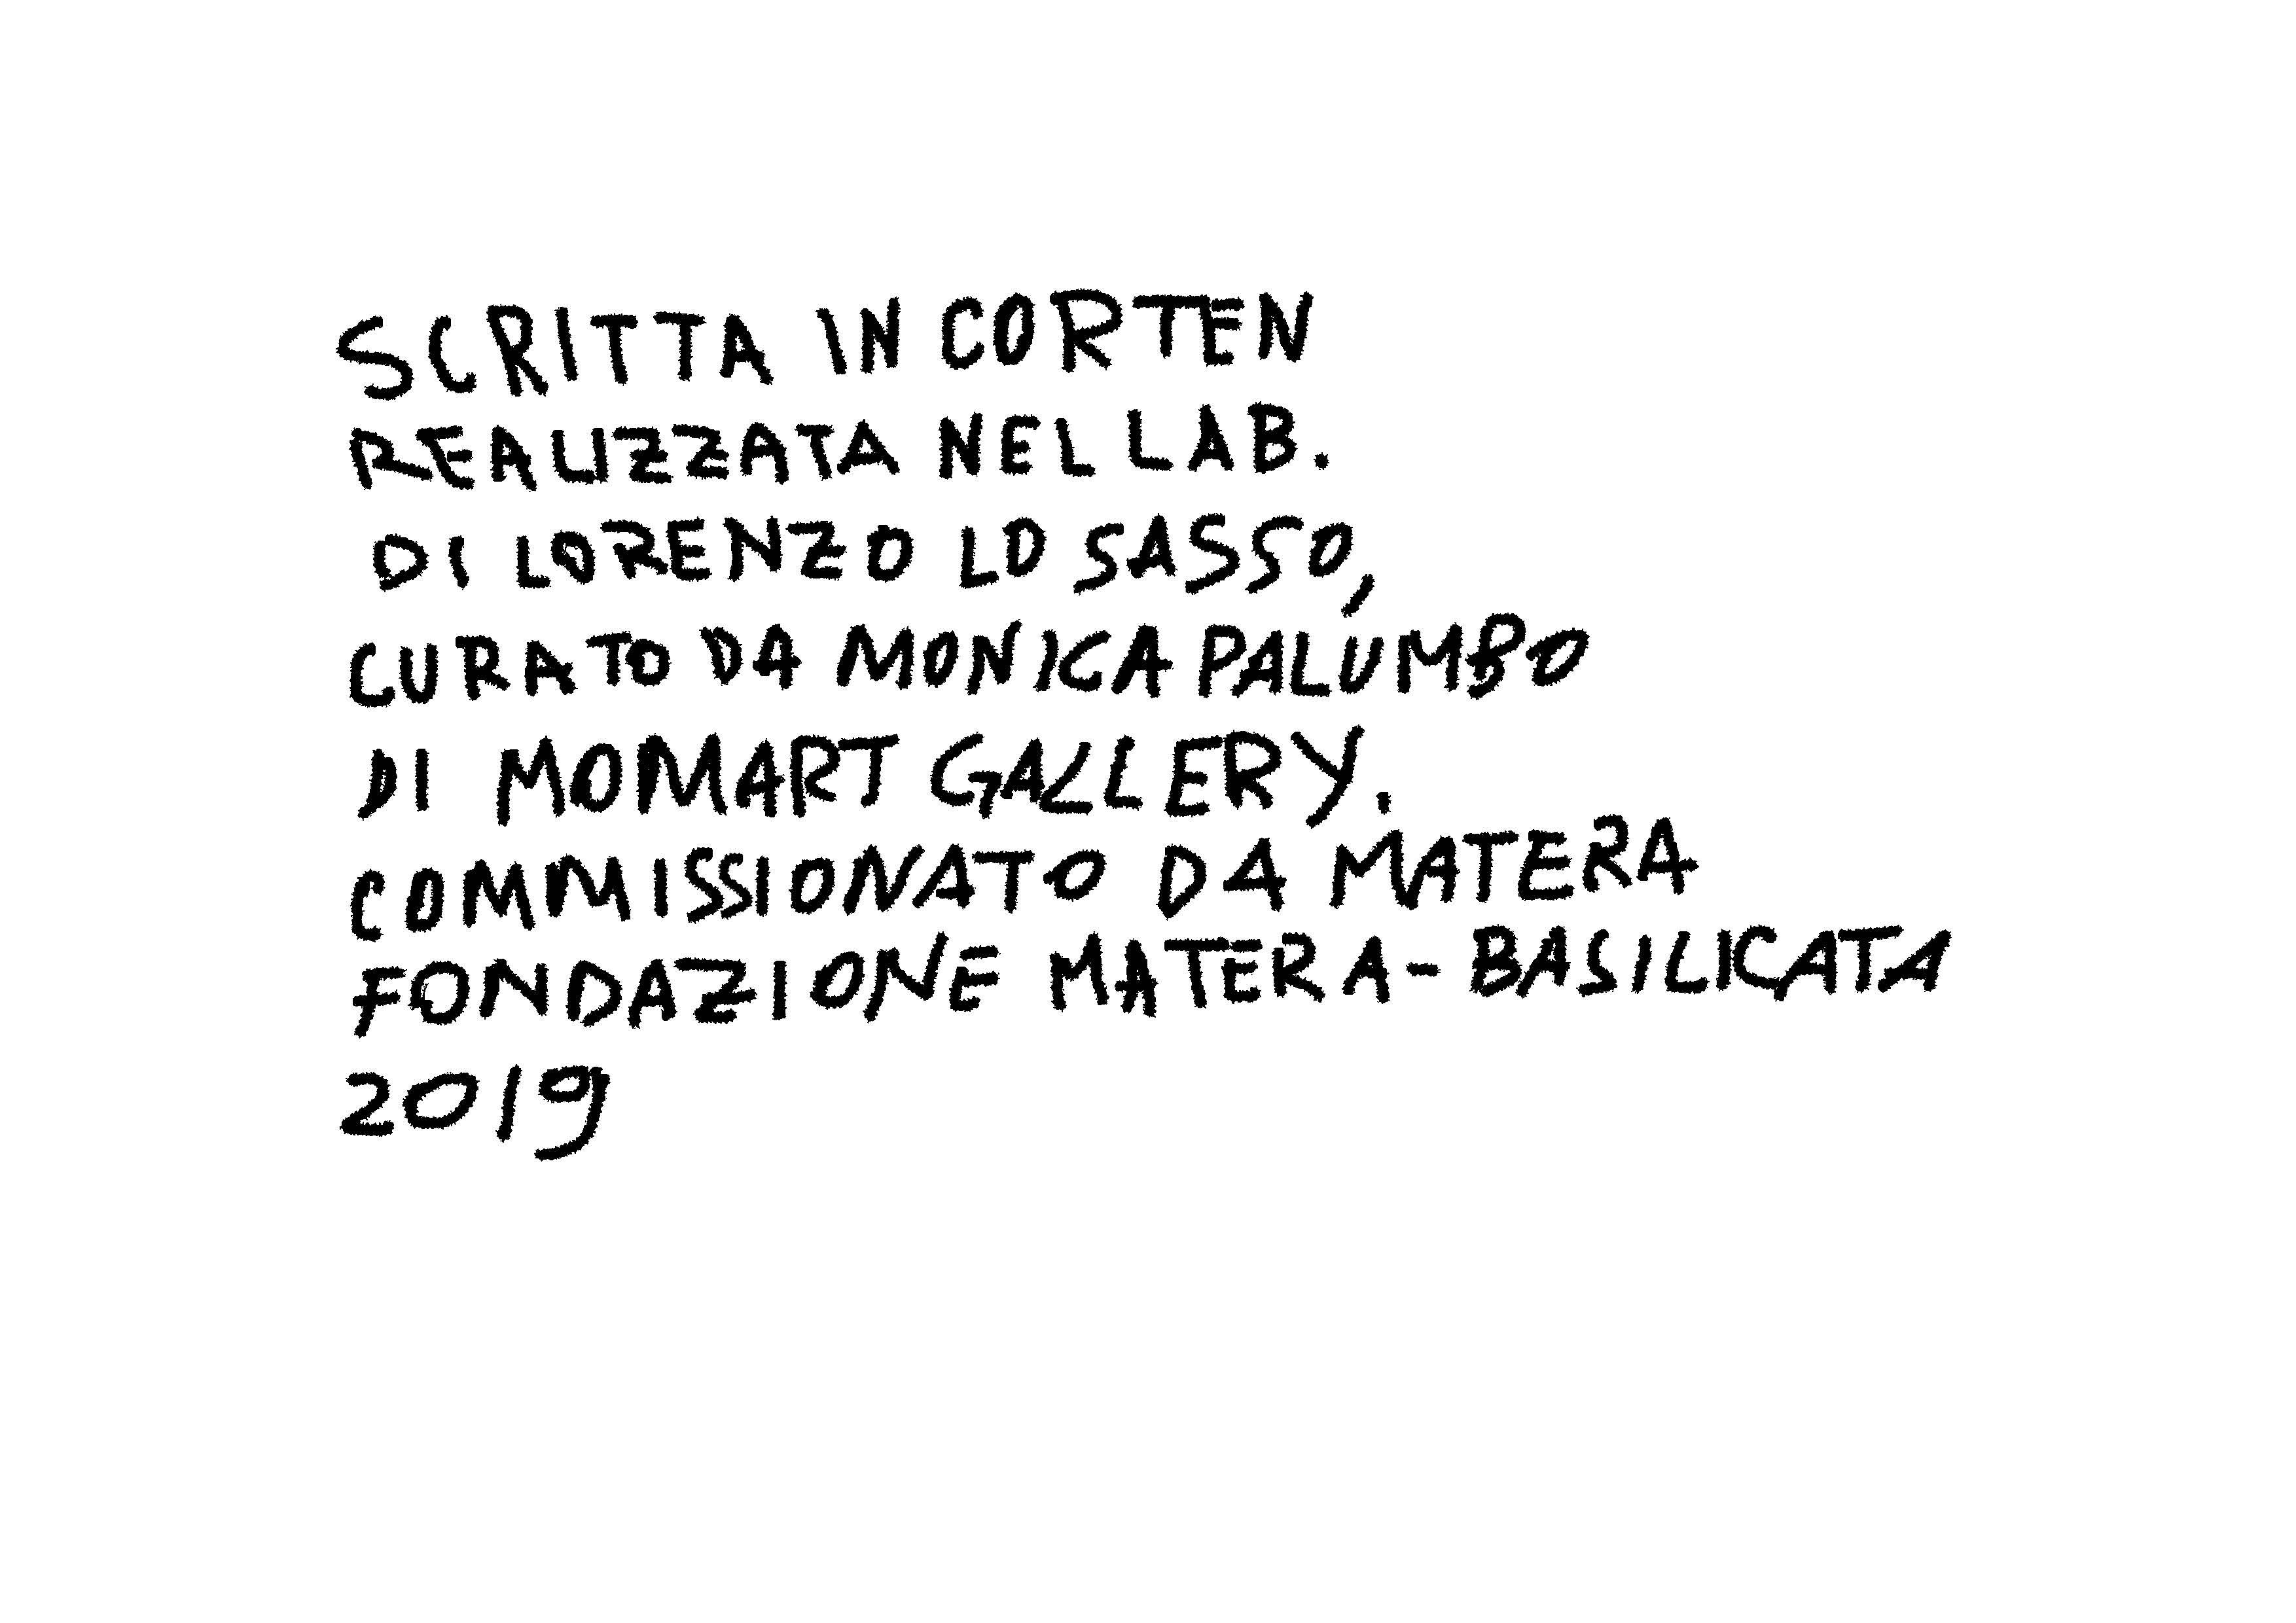 SCRITTA IN CORTEN
REALIZZATA NEL LAB.
DI LORENZO LO SASSO,
CURATO DA MONICA PALUMBO
DI MOMART GALLERY.
COMMISSIONATO DA MATERA
FONDAZIONE MATERA-BASILICATA
2019